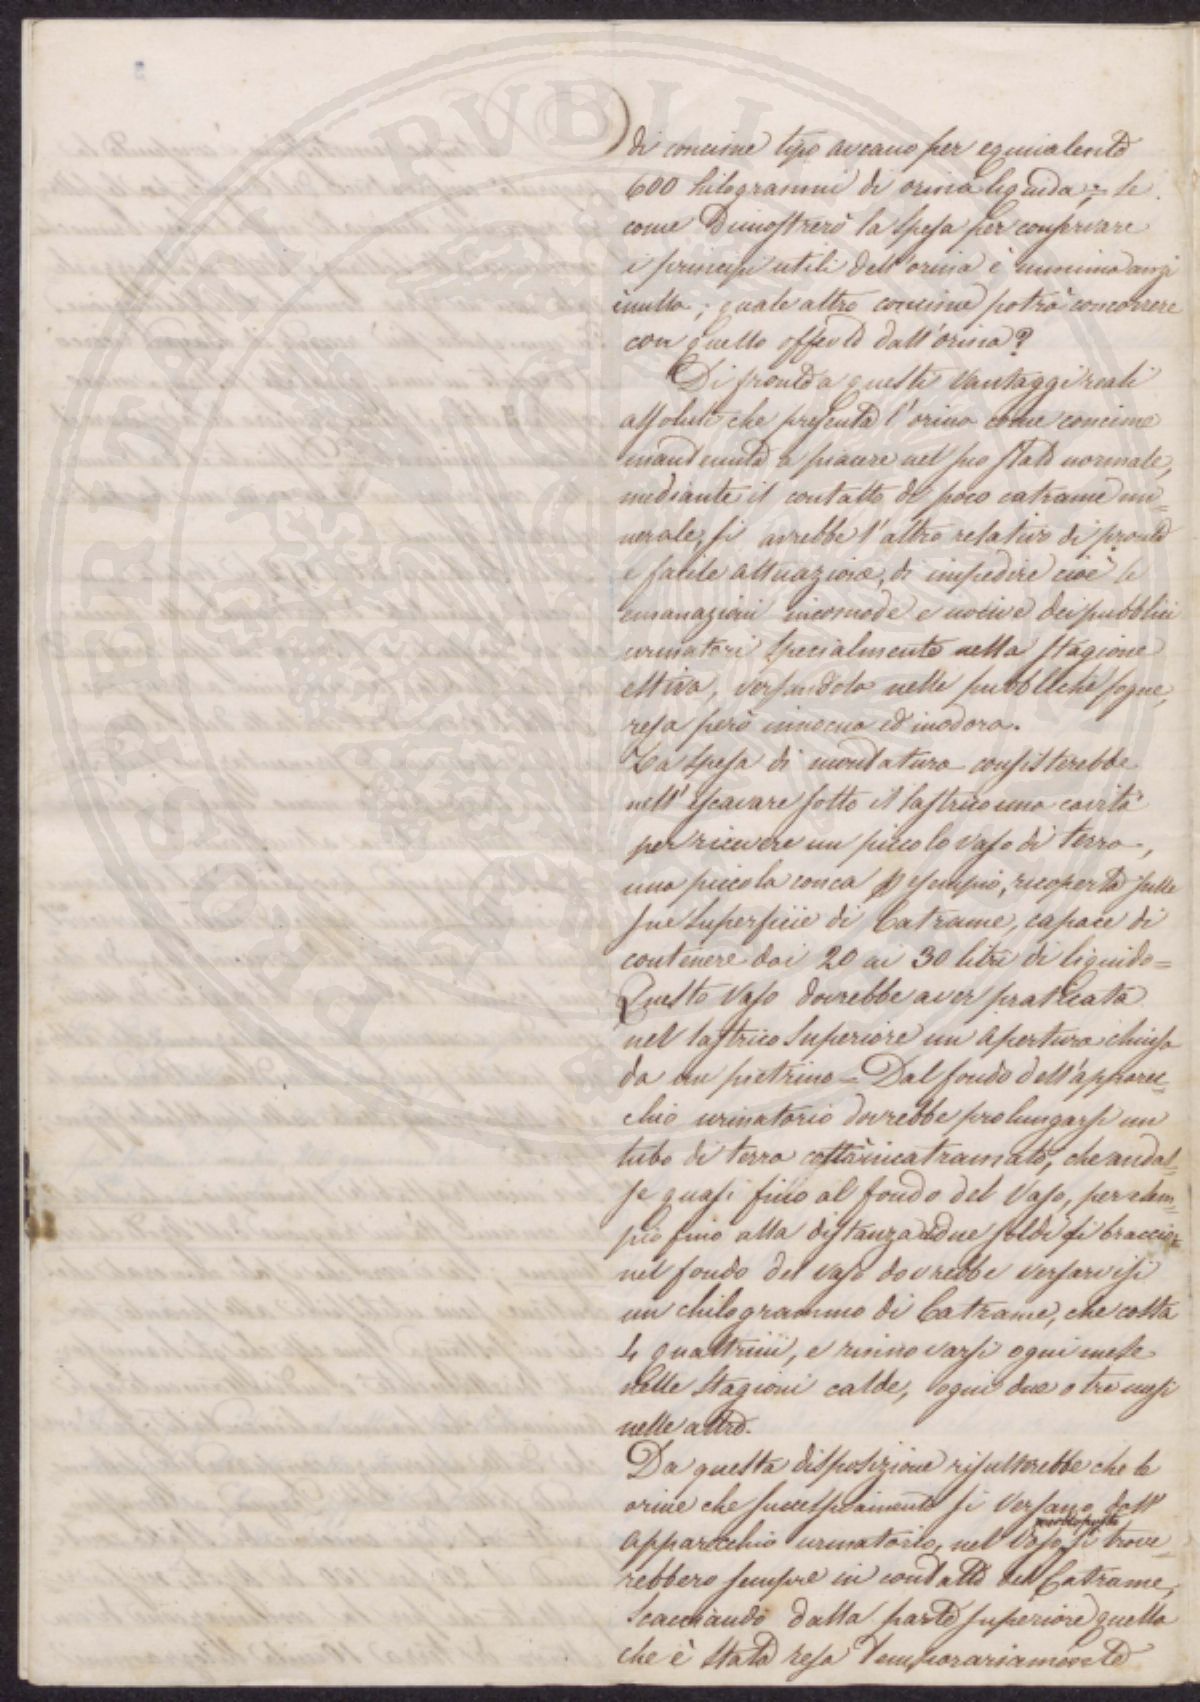 di concime tipo aveano per equivalente
600 kilogrammi di orina liquida; = Se
come dimostrerò la spesa per conservare
i principi utili dell'orina è minima anzi
nulla; quale altro concime potrà concorrere
con quello offerto dall'orina?
Di fronte a questi vantaggi reali
assoluti che presenta l'orina come concime
mantenuta a piacere nel suo stato normale,
mediante il contatto di poco catrame mi=
nerale, si avrebbe l'altro relativo di pronta
e facile attuazione, di impedire cioè le
emanazioni incomode e nocive dei pubblici
urinatori specialmente nella stagione
estiva, versandola nelle pubbliche fogne,
resa però innocua ed inodora.
La spesa di montatura consisterebbe
nell'escavare sotto il lastrico una cavità
per ricevere un piccolo vaso di terra,
una piccola conca p esempio, ricoperta sulle
sue superficie di Catrame, capace di
contenere dai 20 ai 30 litri di liquido =
Questo vaso dovrebbe aver praticata
nel lastrico superiore un apertura chiusa
da un pietrino = Dal fondo dell'apparec=
chio urinatorio dovrebbe prolungarsi un
tubo di terra cotta incatramato, che andas=
se quasi fino al fondo del vaso, per esem=
pio fino alla distanza di due soldi di braccio =
nel fondo del vaso dovrebbe versarvisi
un chilogrammo di Catrame, che costa
4 quattrini, e rinnovarsi ogni mese
nelle stagioni calde, ogni due o tre mesi
nelle altre.
Da questa disposizione risulterebbe che le
orine che successivamente si versano dall'
apparecchio urinatorio, nel vaso sottoposto si trove=
rebbero sempre in contatto del Catrame,
scacciando dalla parte superiore quella
che è stata resa temporariamente